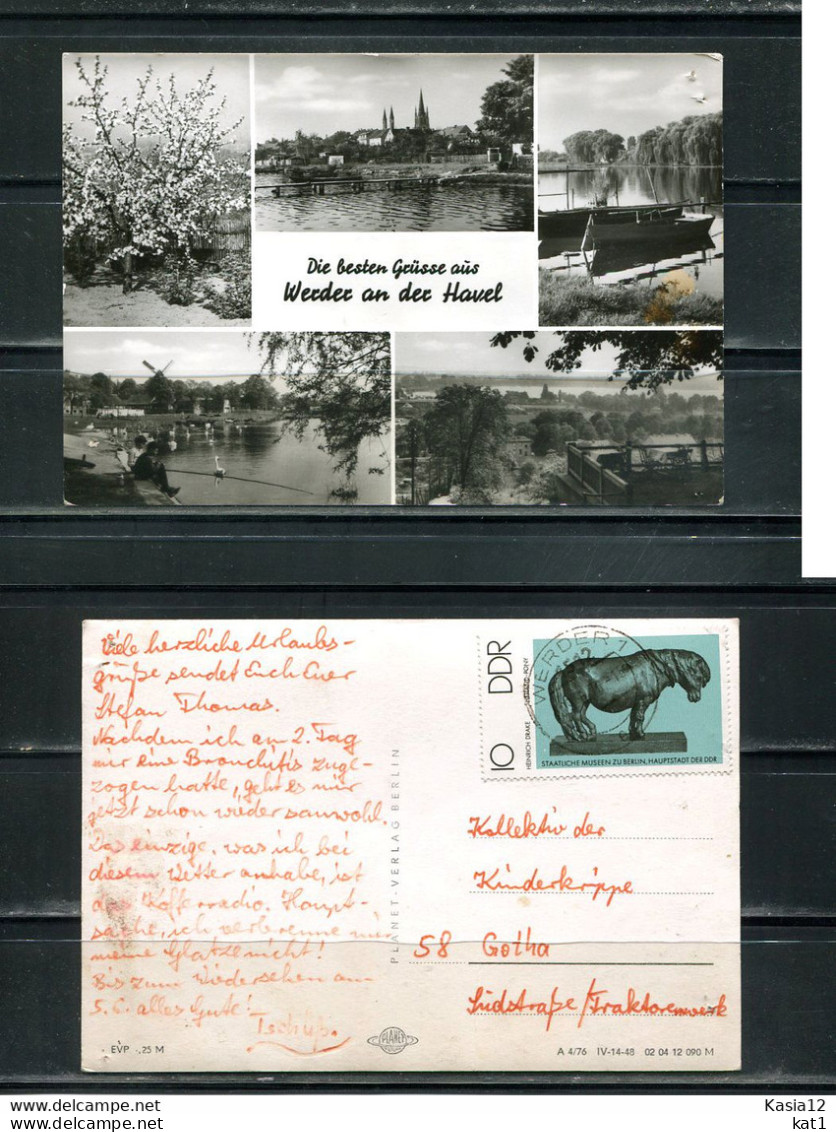 Die besten Grüsse aus
Werder an der Havel
Viele herzliche Urlaubs-
grüße sendet Euch Euer
Stefan Thomas.
Nachdem ich am 2. Tag
mir eine Bronchitis zuge-
zogen hatte, geht es mir
jetzt schon wieder sauwohl.
Das einzige, was ich bei
diesem Wetter anhabe, ist
das Kofferradio. Haupt-
sache, ich verbrenne mir
meine Glatze nicht!
Bis zum Wiedersehen am
5.6. alles Gute!
Tschüß.
EVP -,25 M
PLANET-VERLAG BERLIN
PLANET
10 DDR
HEINRICH DRAKE
STAATLICHE MUSEEN ZU BERLIN, HAUPTSTADT DER DDR
WERDER 1
Kollektiv der
Kinderkrippe
58 Gotha
Südstraße/Traktorenwerk
A 4/76 IV-14-48 02 04 12 090 M
Kasia12
kat1